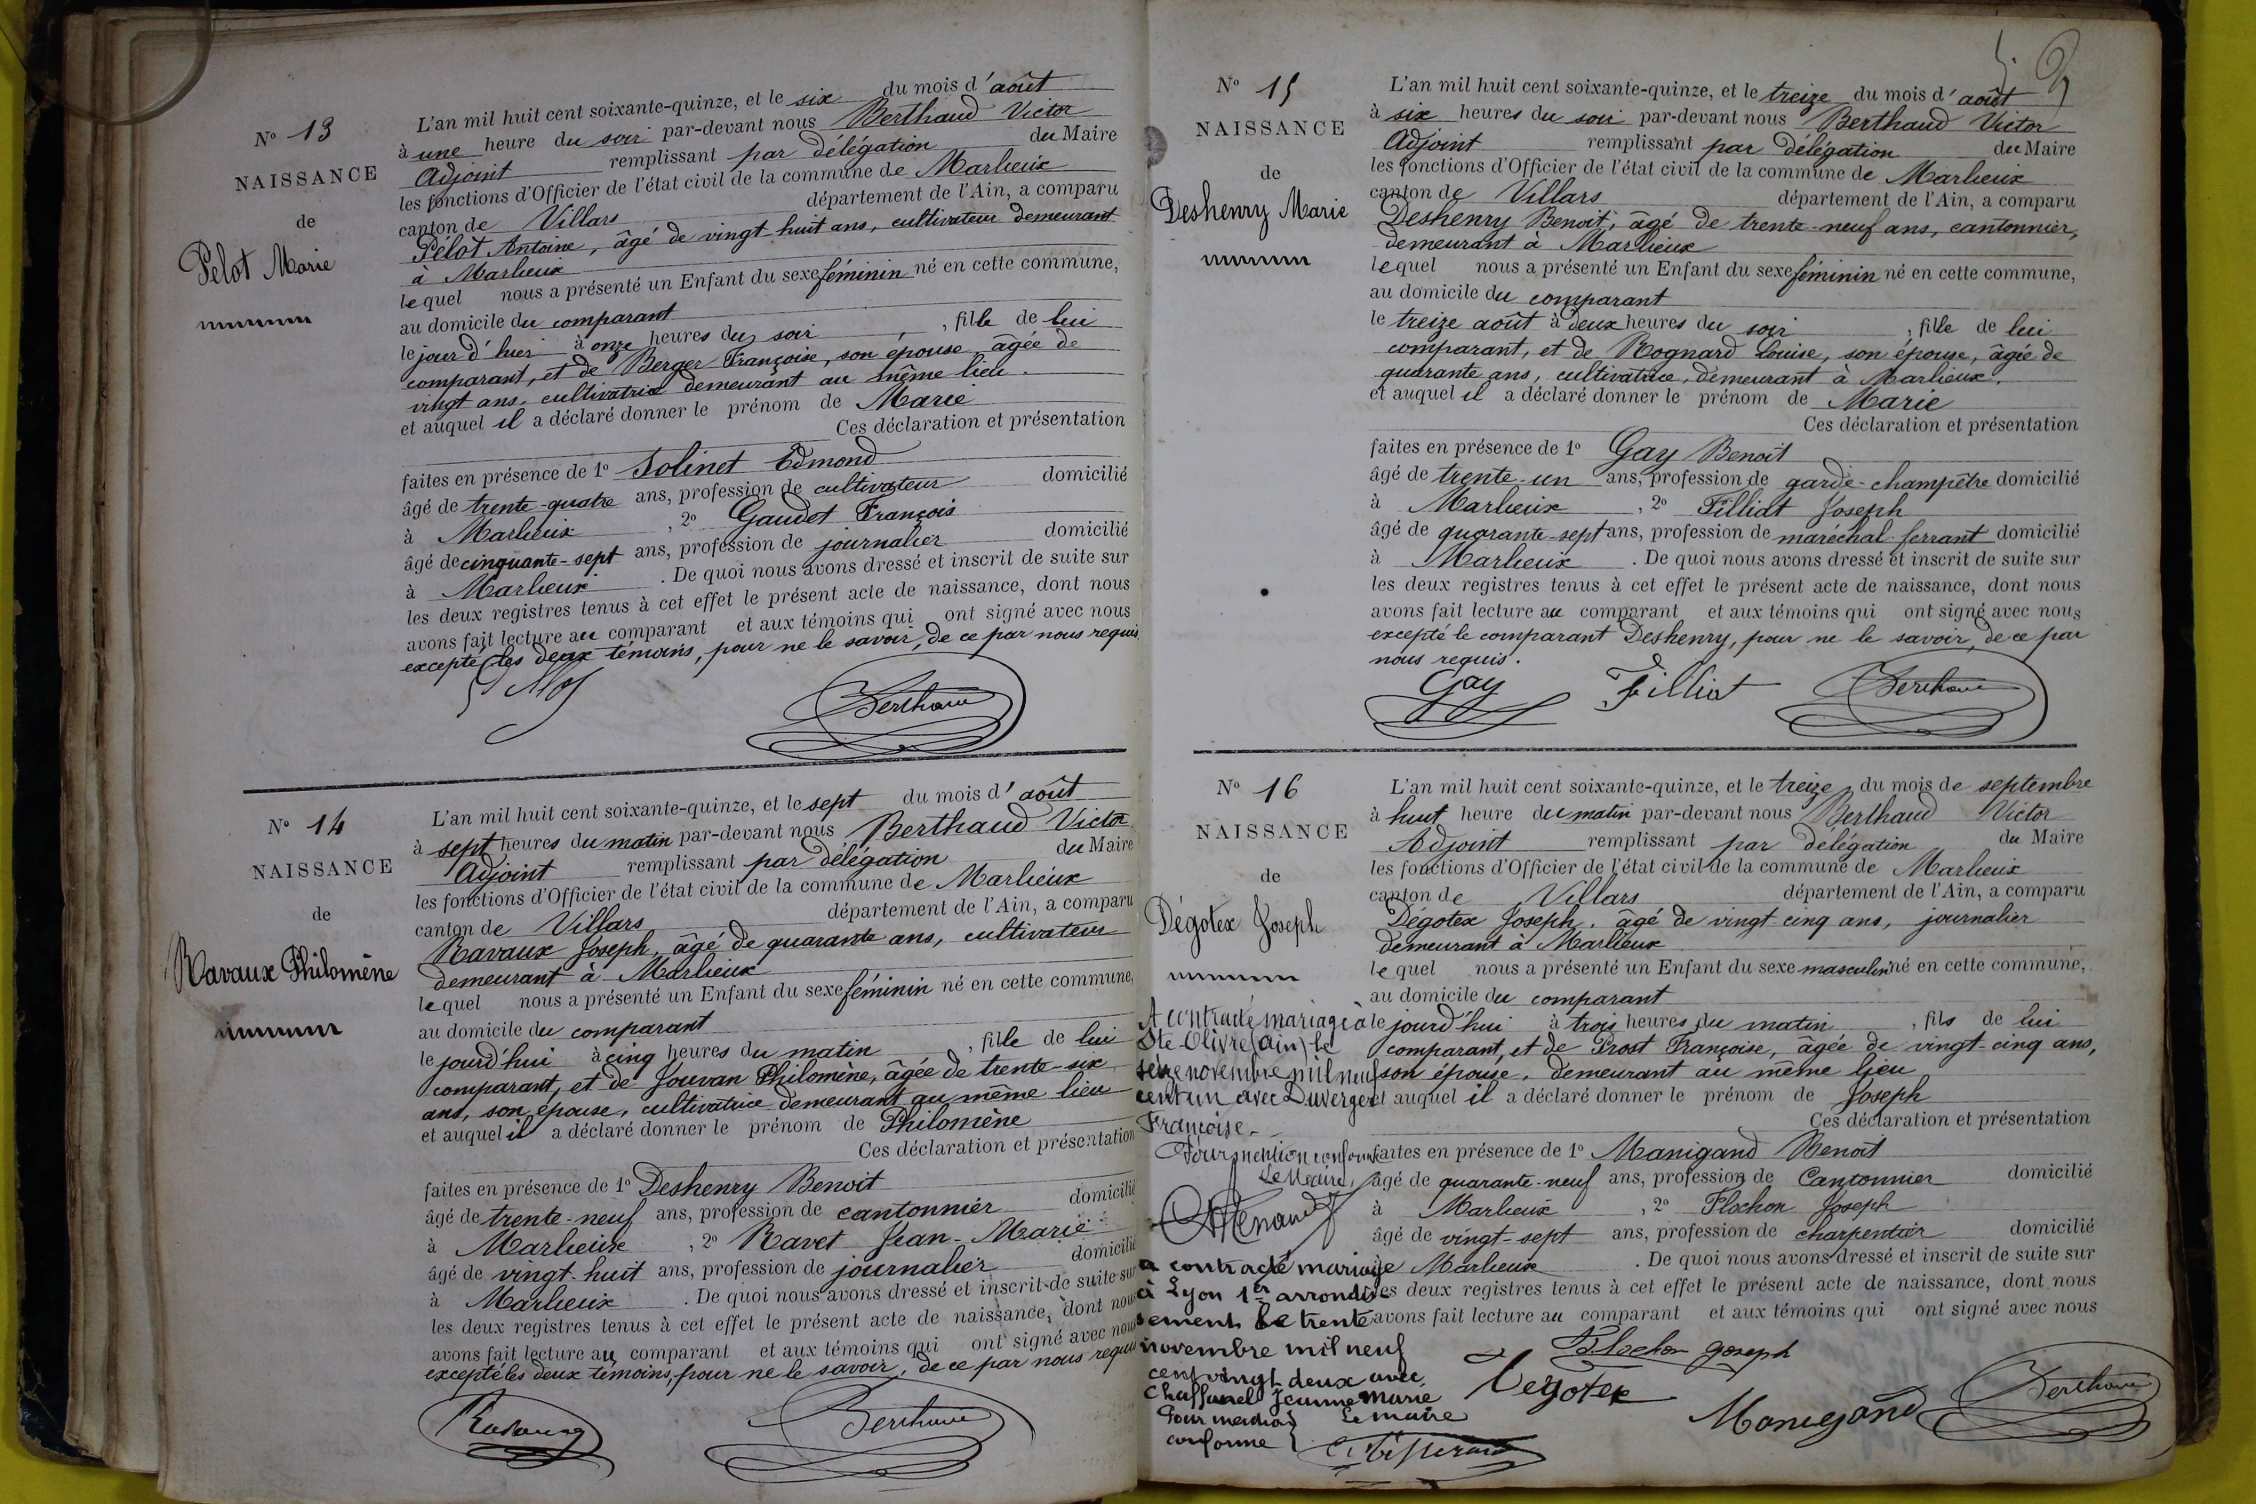 N° 13
NAISSANCE
de
Pelot Marie
L'an mil huit cent soixante-quinze, et le six du mois d'août
à une heure du soir par-devant nous Berthaud Victor
Adjoint remplissant par délégation du Maire
les fonctions d'Officier de l'état civil de la commune de Marlieux
canton de Villars département de l'Ain, a comparu
Pélot Antoine, âgé de vingt huit ans, cultivateur demeurant
à Marlieux
lequel nous a présenté un Enfant du sexe féminin né en cette commune,
au domicile du comparant
le jour d'hier à onze heures du soir , fille de lui
comparant, et de Berger Françoise, son épouse âgée de
vingt ans, cultivatrice demeurant au même lieu.
et auquel il a déclaré donner le prénom de Marie
Ces déclaration et présentation
faites en présence de 1° Solinet Edmond
âgé de trente-quatre ans, profession de cultivateur domicilié
à Marlieux , 2° Gaudet François
âgé de cinquante-sept ans, profession de journalier domicilié
à Marlieux . De quoi nous avons dressé et inscrit de suite sur
les deux registres tenus à cet effet le présent acte de naissance, dont nous
avons fait lecture au comparant et aux témoins qui ont signé avec nous
excepté les deux témoins, pour ne le savoir, de ce par nous requis
Berthaud
N° 14
NAISSANCE
de
Ravaux Philomène
L'an mil huit cent soixante-quinze, et le sept du mois d'août
à sept heures du matin par-devant nous Berthaud Victor
Adjoint remplissant par délégation du Maire
les fonctions d'Officier de l'état civil de la commune de Marlieux
canton de Villars département de l'Ain, a comparu
Ravaux Joseph, âgé de quarante ans, cultivateur
demeurant à Marlieux
lequel nous a présenté un Enfant du sexe féminin né en cette commune,
au domicile du comparant
le jourd'hui à cinq heures du matin , fille de lui
comparant, et de Jouvan Philomène, âgée de trente-six
ans, son épouse, cultivatrice demeurant au même lieu
et auquel il a déclaré donner le prénom de Philomène
Ces déclaration et présentation
faites en présence de 1° Deshenry Benoit
âgé de trente-neuf ans, profession de cantonnier domicilié
à Marlieux , 2° Ravet Jean-Marie
âgé de vingt-huit ans, profession de journalier domicilié
à Marlieux . De quoi nous avons dressé et inscrit de suite sur
les deux registres tenus à cet effet le présent acte de naissance, dont nous
avons fait lecture au comparant et aux témoins qui ont signé avec nous
excepté les deux témoins, pour ne le savoir, de ce par nous requis
Berthaud
N° 15
NAISSANCE
de
Deshenry Marie
L'an mil huit cent soixante-quinze, et le treize du mois d'août
à six heures du soir par-devant nous Berthaud Victor
Adjoint remplissant par délégation du Maire
les fonctions d'Officier de l'état civil de la commune de Marlieux
canton de Villars département de l'Ain, a comparu
Deshenry Benoit, âgé de trente-neuf ans, cantonnier,
demeurant à Marlieux
lequel nous a présenté un Enfant du sexe féminin né en cette commune,
au domicile du comparant
le treize août à deux heures du soir , fille de lui
comparant, et de Rognard Louise, son épouse, âgée de
quarante ans, cultivatrice, demeurant à Marlieux.
et auquel il a déclaré donner le prénom de Marie
Ces déclaration et présentation
faites en présence de 1° Gay Benoit
âgé de trente-un ans, profession de garde-champêtre domicilié
à Marlieux , 2° Filliat Joseph
âgé de quarante-sept ans, profession de maréchal ferrant domicilié
à Marlieux . De quoi nous avons dressé et inscrit de suite sur
les deux registres tenus à cet effet le présent acte de naissance, dont nous
avons fait lecture au comparant et aux témoins qui ont signé avec nous
excepté le comparant Deshenry, pour ne le savoir, de ce par
nous requis.
Gay Filliat Berthaud
N° 16
NAISSANCE
de
Dégotex Joseph
A contracté mariage à
Ste Olive (ain) le
seize novembre mil neuf
cent un avec Duverger
Françoise.
Pour mention conforme
Le Maire,
a contracté mariage
à Lyon 1er arrondis
sement le trente
novembre mil neuf
cent vingt deux avec
Chaffanel Jeanne Marie
Pour mention
conforme
Le maire
L'an mil huit cent soixante-quinze, et le treize du mois de septembre
à huit heure du matin par-devant nous Berthaud Victor
Adjoint remplissant par délégation du Maire
les fonctions d'Officier de l'état civil de la commune de Marlieux
canton de Villars département de l'Ain, a comparu
Dégotex Joseph, âgé de vingt cinq ans, journalier
demeurant à Marlieux
lequel nous a présenté un Enfant du sexe masculin né en cette commune,
au domicile du comparant
le jourd'hui à trois heures du matin , fils de lui
comparant, et de Prost Françoise, âgée de vingt-cinq ans,
son épouse, demeurant au même lieu
et auquel il a déclaré donner le prénom de Joseph
Ces déclaration et présentation
faites en présence de 1° Manigand Benoit
âgé de quarante-neuf ans, profession de Cantonnier domicilié
à Marlieux , 2° Flochon Joseph
âgé de vingt-sept ans, profession de charpentier domicilié
à Marlieux . De quoi nous avons dressé et inscrit de suite sur
les deux registres tenus à cet effet le présent acte de naissance, dont nous
avons fait lecture au comparant et aux témoins qui ont signé avec nous
Flochon Joseph
Dégotex
Manigand Berthaud